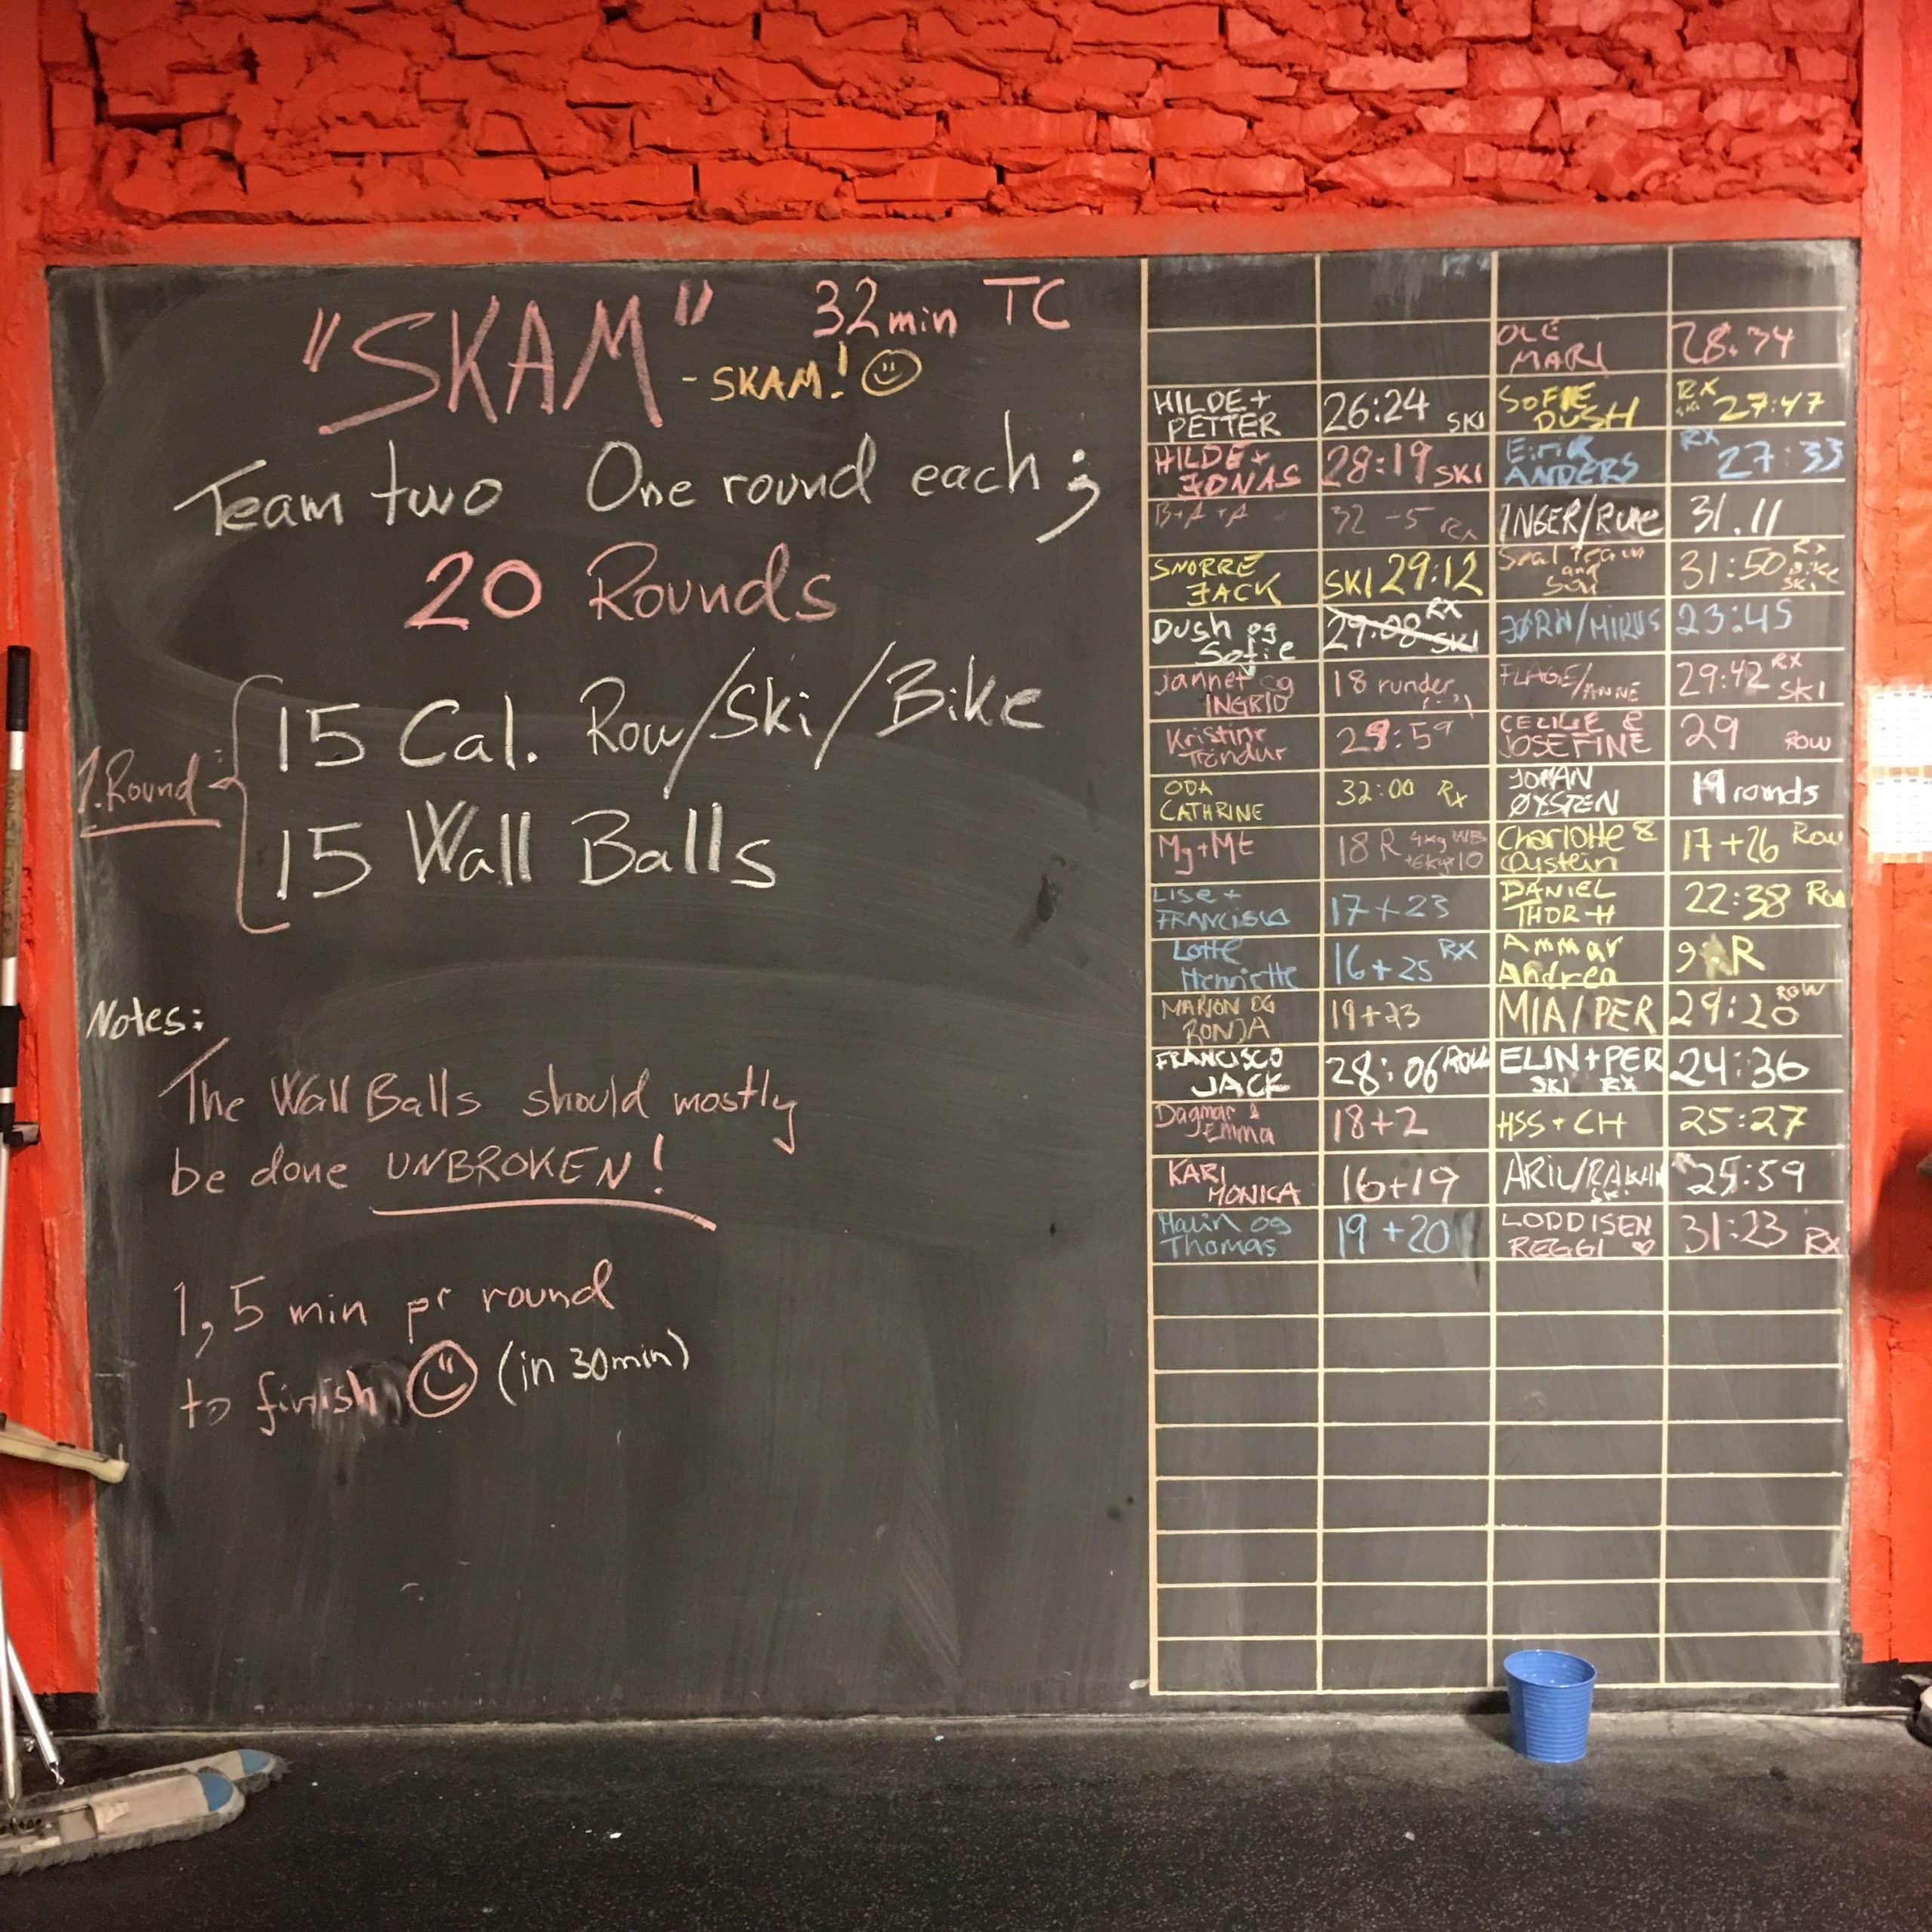 "SKAM" 32min TC
- SKAM!
Team two One round each ;
20 Rounds
1.Round
15 Cal. Row/Ski/Bike
15 Wall Balls
Notes:
The Wall Balls should mostly
be done UNBROKEN!
1,5 min pr round
to finish (in 30min)
HILDE+
PETTER
26:24 SKI
HILDE+
JONAS
28:19 SKI
B+A+A
32 -5 Rx
SNORRE
JACK
SKI 29:12
Dush og
Sofie
29:08 RX
SKI
Jannet og
INGRID
18 runder
Kristine
Trindur
29:59
ODA
CATHRINE
32:00 Rx
Mg+Mt
18 R 4kg WB
+6kg×10
Lise +
FRANCISCO
17+23
Lotte
Henriette
16+25 RX
MARION OG
RONJA
19+23
FRANCISCO
JACK
28:06 ROW
Dagmar &
Emma
18+2
KARI
MONICA
16+19
Malin og
Thomas
19+20
OLE
MARI
28:34
SOFIE
DUSH
RX
ski 27:47
EiriK
ANDERS
RX
27:33
INGER/RUNE
31.11
Seal Team
and
31:50 Rx
Bike
Ski
JØRN/MIRUS
23:45
FLAGE/ANNE
29:42 RX
SKI
CECILIE &
JOSEFINE
29 ROW
JOHAN
ØYSTEN
19 rounds
Charlotte &
Øystein
17+26 Row
DANIEL
THOR-H
22:38 Row
Ammar
Andrea
9 R
MIA/PER
29:20 ROW
ELIN+PER
SKI RX
24:36
HSS + CH
25:27
25:59
LODDISEN
REGGI ♡
31:23 RX